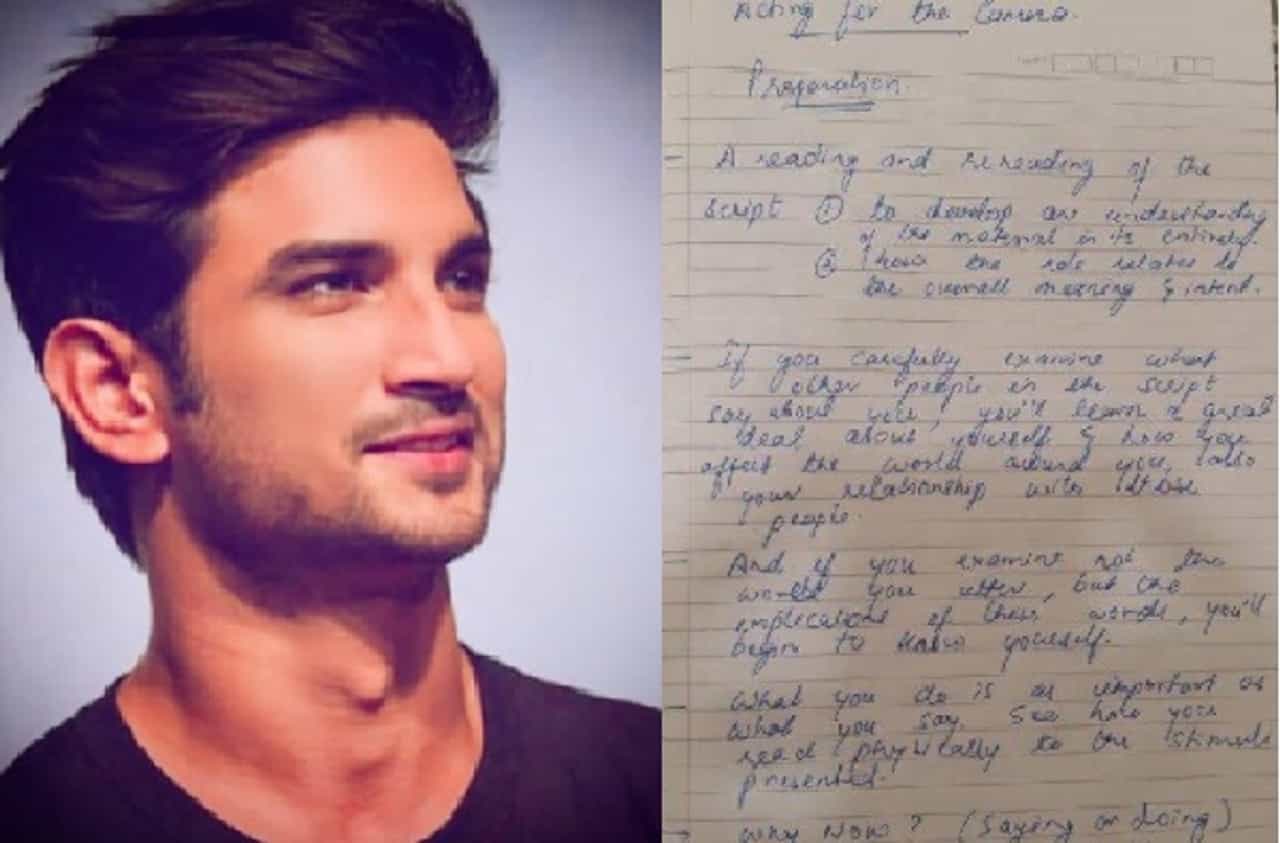 Acting for the Camera.
Preparation.
- A reading and rereading of the
script ① to develop an understanding
of the material in its entirety.
② how the role relates to
the overall meaning & intent.
- If you carefully examine what
other people in the script
say about you, you'll learn a great
deal about yourself & how you
affect the world around you, also
your relationship with those
people.
- And if you examine not the
words you utter, but the
implications of those words, you'll
begin to know yourself.
- What you do is as important as
what you say. See how you
react physically to the stimuli
presented.
→ Why Now? (Saying or doing)